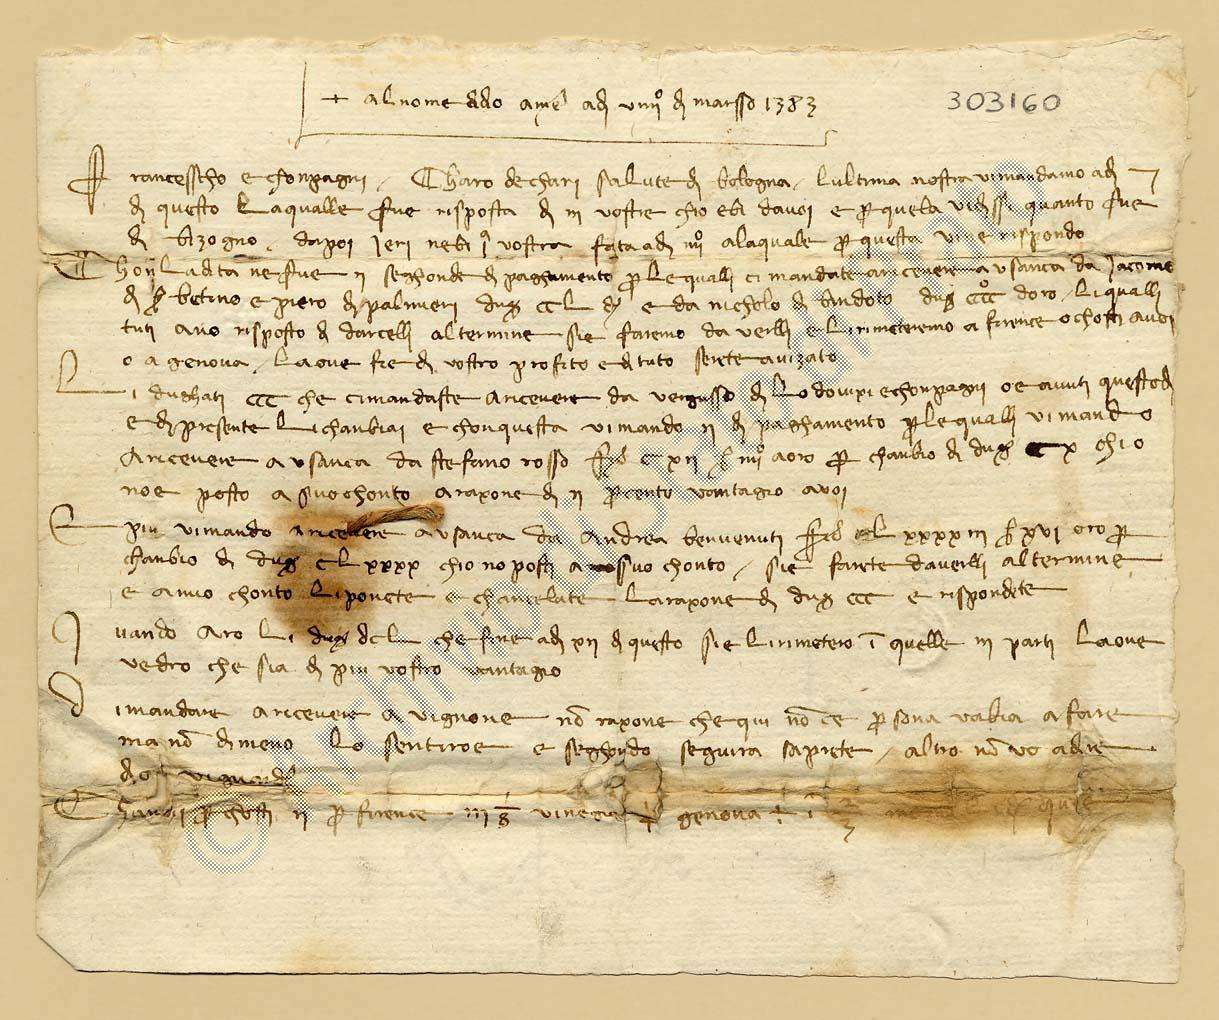 + al nome didio ame adi viiii° di marsso 1383
303160
Francesscho e chonpagni / Charo de chari salute di bologna / lultima nostra vi mandamo adi 7
di questo laqualle fue risposta di iii vostre chio ebi da voi e per quela vi dissi quanto fue
di bizogno / dapoi ieri nebi i° vostra fata adi iiii° alaquale per questa vi rispondo
Chon la dita ne fue ii seghonde di paghamento per le qualli ci mandate a ricevere a usanca da Jacomo
di betino e piero di palmieri dug ccl e da nicholo di bandolo dug ccc doro / li qualli
tuti ano risposto di darcelli al termine sie faremo da verlli e li rimeteremo a firence o chosti a voi
o a genova / la ove fie di vostro profito e di tuto serete avizato
Li dughati ccc che ci mandaste a ricevere da vergusso di lodovixi e chonpagni o e avuti questo di
e di presente li chanbiai e chon questa vi mando ii di paghamento per le qualli vi mando
a ricevere a usanca da stefano rosso cxii iiii° a oro per chanbio di dug cx chio
no e posto a suo chonto a raxone di ii per cento vantagio a voi
E piu vi mando a ricevere a usanca da Andrea benvenuti clxxxxiii xvi oro per
chanbio di dug clxxxx chio no posti a suo chonto / sie farete daverlli al termine
e a mio chonto li ponete e chancelate la raxone di dug ccc e rispondete
Quando aro li dug dcl che fine adi xii di questo sie li rimetero in quelle iii parti la ove
vedro che sia di piu vostro vantagio
Di mandare a ricevere a vignone no raxone che qui non ce persona vabia a fare
ma non di meno lo sentiroe e seghondo seguira saprete / altro non vo a dire
di o vi guardi
Chanbi per chosti ii per firence iii vinegia genova